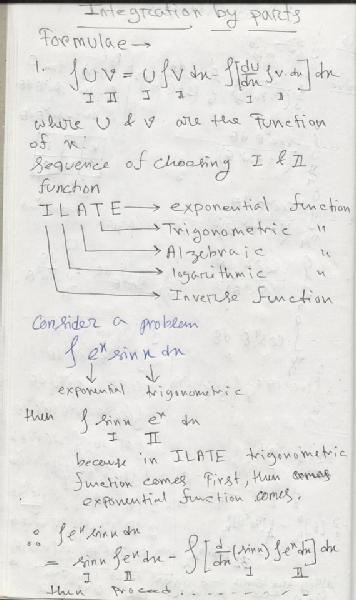 Integration by parts
Formulae →
1. ∫ U V = U ∫ V dx - ∫ [ du/dx ∫ v dx ] dx
I II I II I II
where U & V are the Function
of x.
Sequence of choosing I & II
function
I L A T E → exponential function
→ Trigonometric "
→ Algebraic "
→ logarithmic "
→ Inverse function
Consider a problem
∫ e^x sin x dx
↓ ↓
exponential trigonometric
then ∫ sin x e^x dx
I II
because in ILATE trigonometric
function comes First, then
exponential function comes.
∴ ∫ e^x sin x dx
= sin x ∫ e^x dx - ∫ [ d/dx (sin x) ∫ e^x dx ] dx
I II I II
then proceed. . . . . . . . . .